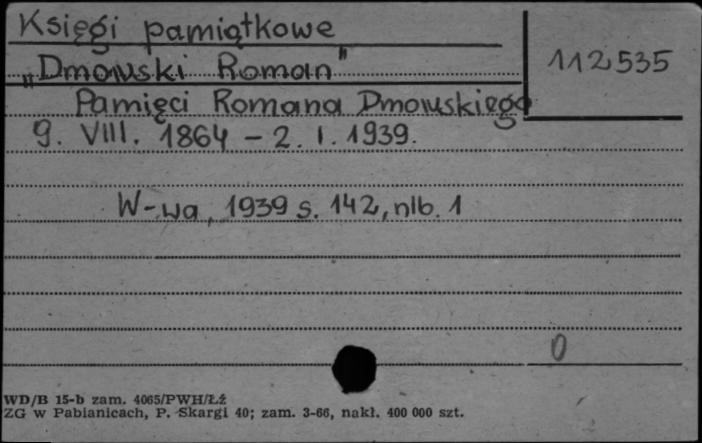 Księgi pamiątkowe
112535
„Dmowski Roman"
Pamięci Romana Dmowskiego
9. VIII. 1864 – 2. I. 1939.
W-wa, 1939 s. 142, nlb. 1
0
WD/B 15-b zam. 4065/PWH/Łź
ZG w Pabianicach, P. Skargi 40; zam. 3-66, nakł. 400 000 szt.